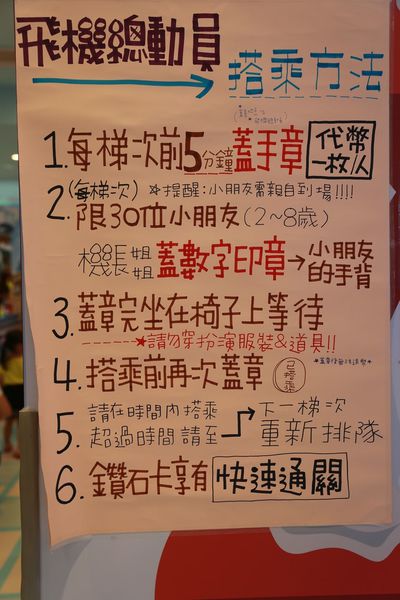 飛機總動員
搭乘方法
1.每梯次前5分鐘蓋手章 代幣一枚/人
2.(每梯次) ☆提醒:小朋友需親自到場!!!!
限30位小朋友(2~8歲)
機長姐姐蓋數字印章→小朋友的手背
3.蓋章完坐在椅子上等待
★請勿穿扮演服裝&道具!!
4.搭乘前再次蓋章 已搭乘
5.請在時間內搭乘
超過時間請至→下一梯次重新排隊
6.鑽石卡享有 快速通關